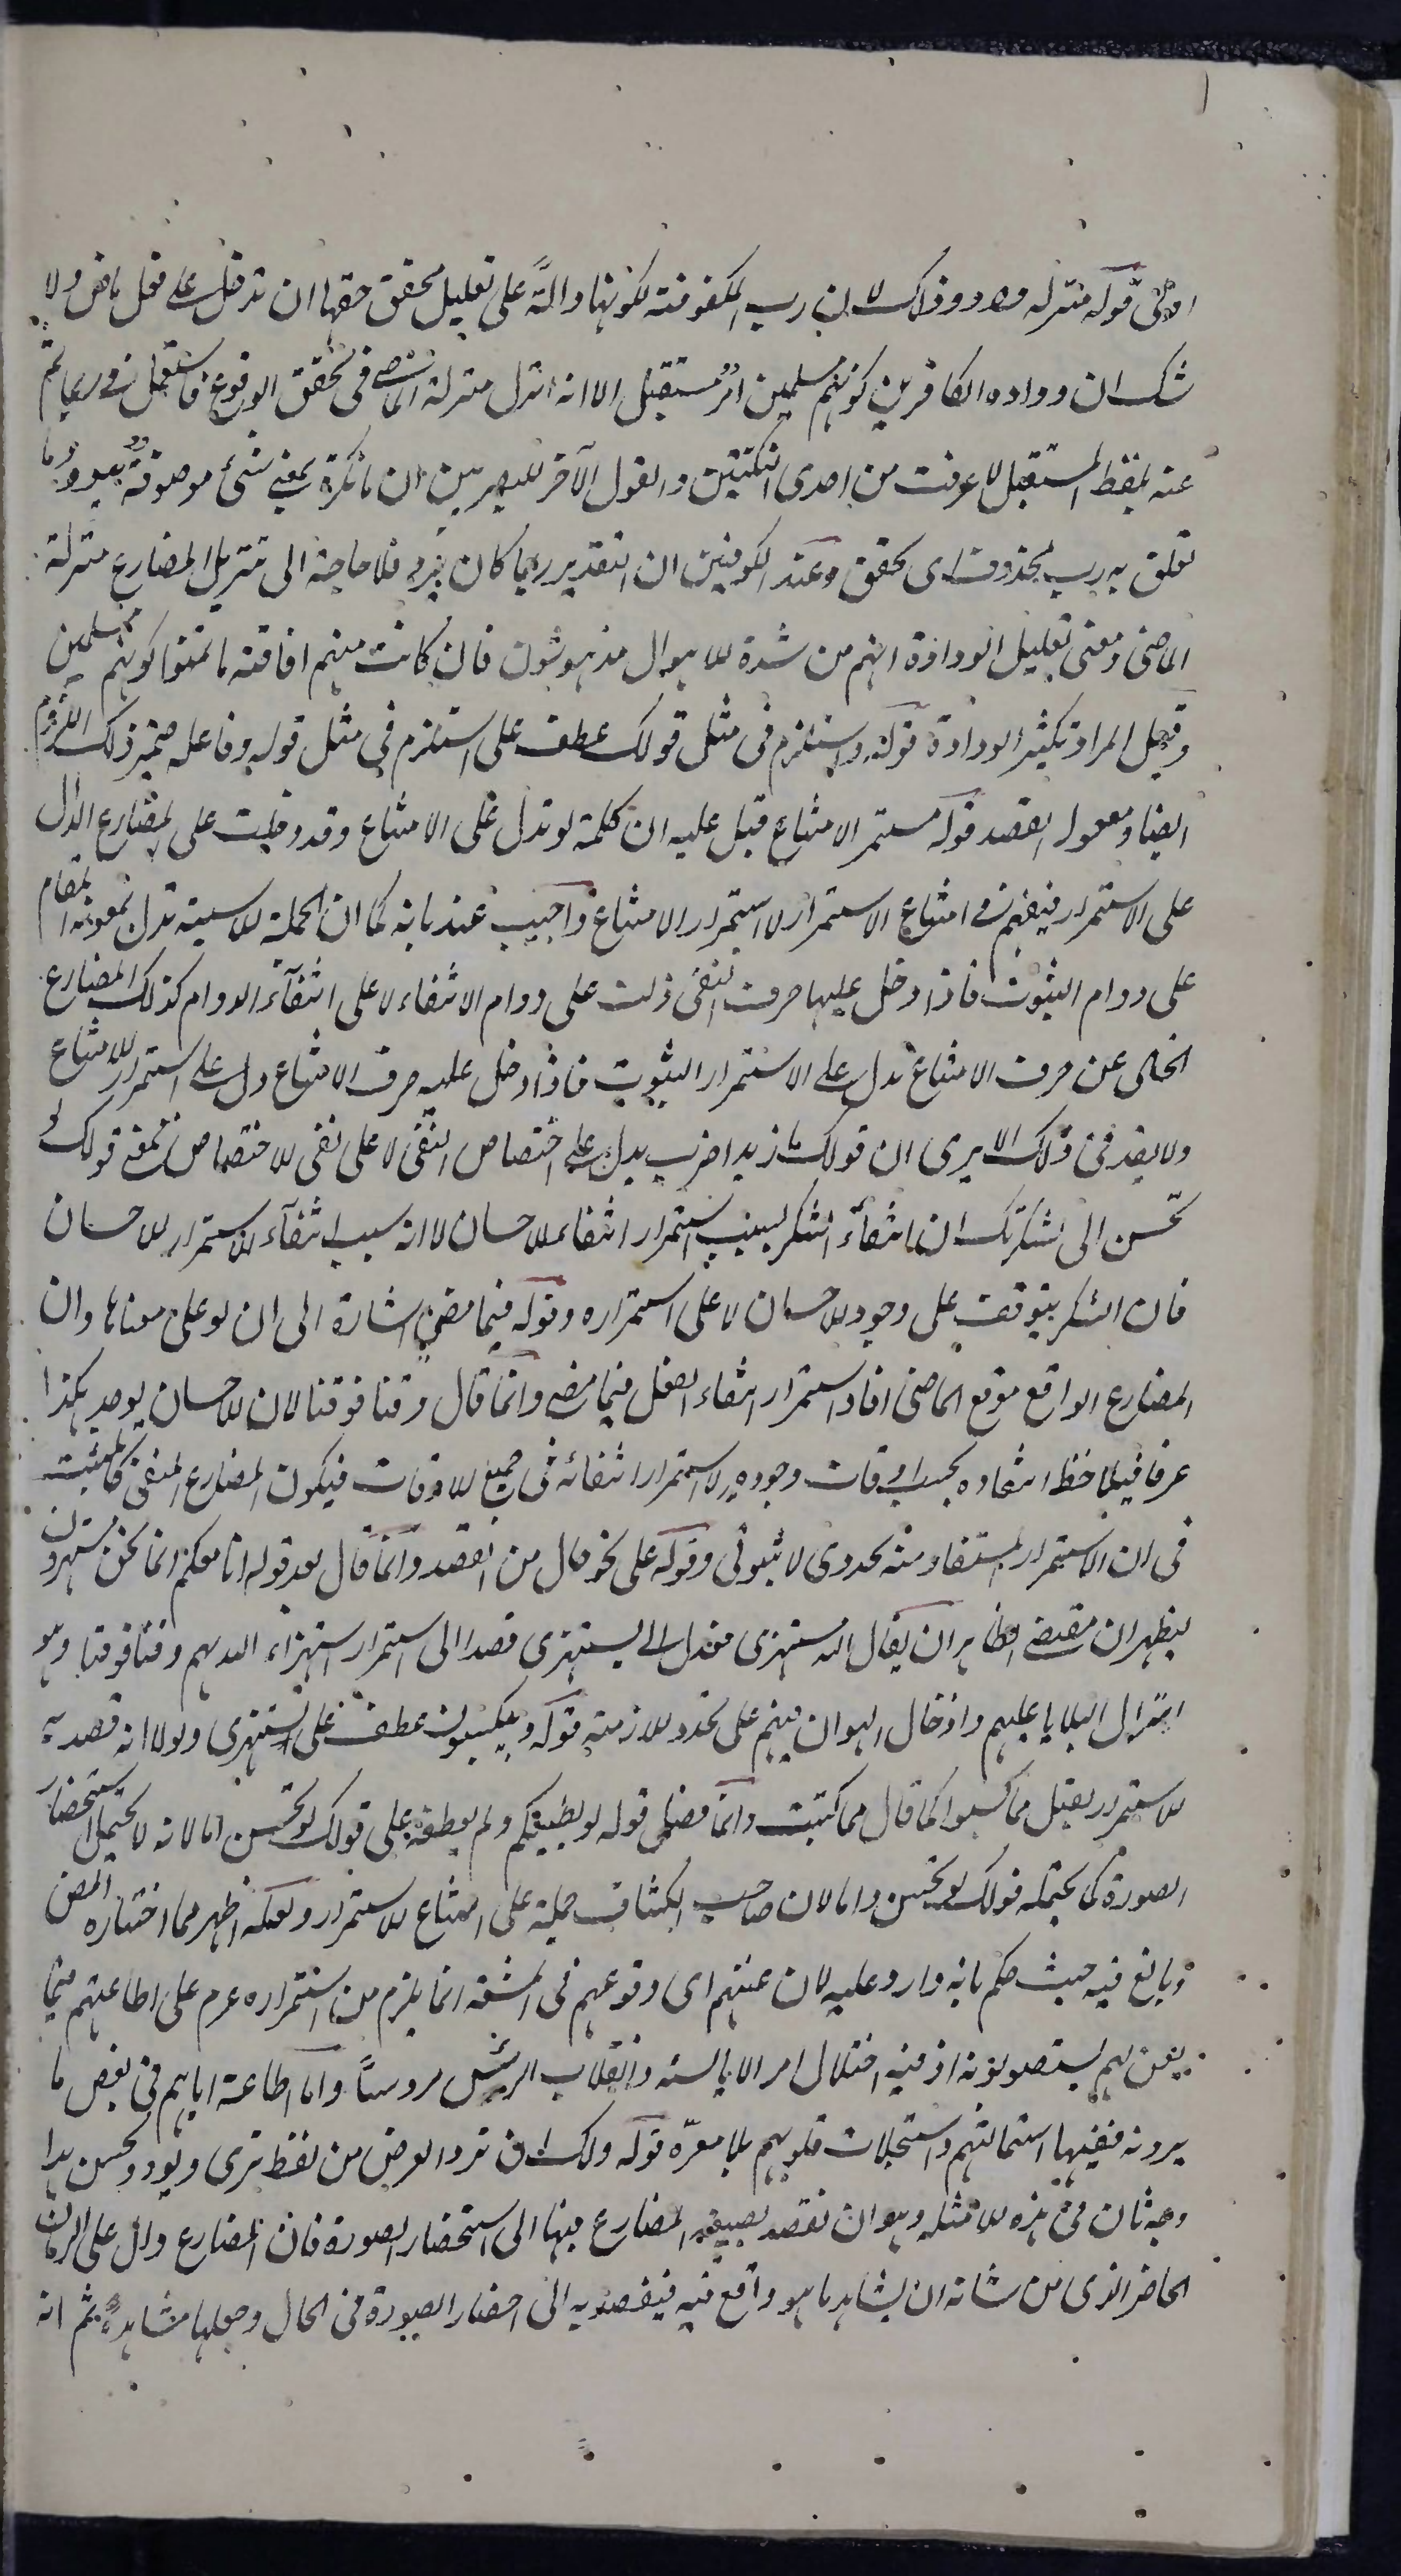 قوله منزلة ود وذلك لان رب المكفوفة لكونها دالة على تقليل محقق حقها ان تدخل على فعل ماض ولا
شك ان ودادة الكافرين كونهم مسلمين امر مستقبل الا انه انزل منزلة الماضي في تحقق الوقوع فاستعمل فيه ربما ثم
عنه بلفظ المستقبل لما عرفت من احدى النكتتين والقول الآخر للبصريين ان ما نكرة بمعنى شئ موصوفة بيود وما
تعلق به رب محذوف اى تحقق وعند الكوفيين ان التقدير ربما كان يود فلا حاجة الى تنزيل المضارع منزلة
الماضى ومعنى تقليل الودادة انهم من شدة الاهوال مدهوشون فان كانت منهم افاقة ما تمنوا كونهم مسلمين
وقيل المراد تكثير الودادة قوله ويستلزم فى مثل قولك عطف على استلزم في مثل قوله وفاعله ضمير ذلك اللزوم
ايضا ومعمول القصد قوله مستمر الامتناع قيل عليه ان كلمة لو تدل على الامتناع وقد دخلت على المضارع الدال
على الاستمرار فيفهم منه امتناع الاستمرار لا استمرار الامتناع واجيب عنه بانه كما ان الجملة الاسمية تدل بمعونة المقام
على دوام الثبوت فاذا دخل عليها حرف النفى دلت على دوام الانتفاء لا على انتفآء الدوام كذلك المضارع
الخالى عن حرف الامتناع يدل على الاستمرار الثبوت فاذا دخل عليه حرف الامتناع دل على استمرار الامتناع
ولا بعد فى ذلك الا يرى ان قولك ما زيدا ضربت يدل على اختصاص النفى لا على نفى الاختصاص فمعنى قولك لو
تحسن الى لشكرتك ان انتفآء الشكر لسبب استمرار انتفاء الاحسان لا انه سبب انتفآء الاستمرار الاحسان
فان الشكر يتوقف على وجود الاحسان لا على استمراره وقوله فيما مضى اشارة الى ان لو على معناها وان
المضارع الواقع موقع الماضى افاد استمرار انتفاء الفعل فيما مضى وانما قال وقتا فوقتا لان الاحسان يوجد هكذا
عرفا فيلاحظ انتفاؤه بحسب اوقات وجوده لا استمرار انتفائه فى جميع الاوقات فيكون المضارع المنفى كالمثبت
فى ان الاستمرار المستفاد منه تجددى لا ثبوتى وقوله على نحو قال من القصد وانما قال بعد قوله انا معكم انما نحن مستهزون
ليظهر ان مقتضى الظاهر ان يقال الله مستهزى فعدل الى يستهزى قصدا الى استمرار استهزاء الله بهم وقتا فوقتا وهو
انزال البلايا عليهم وادخال الهوان فيهم على تجدد الازمنة قوله ويكسبون عطف على يستهزى ولولا انه قصد به
الاستمرار لقيل مما كسبوا كما قال مما كتبت وانما فصل قوله لو يطيعكم ولم يعطفه على قولك لو تحسن اما لانه لا يحتمل استحضار
الصورة كما يحتمله قولك لو تحسن واما لان صاحب الكشاف حمله على امتناع الاستمرار ولعله اظهر مما اختاره المص
وبالغ فيه حيث حكم بانه وارد عليه لان عنتهم اى وقوعهم فى المشقة انما يلزم من استمراره عزم على اطاعتهم فيما
يعن لهم يستصوبونه اذ فيه اختلال امر الايالة وانقلاب الرئيس مروسا واما اطاعة اياهم فى بعض ما
يرونه ففيها استمالتهم واستجلاب قلوبهم بلا معرة قوله ولك ان ترد الغرض من لفظ ترى ويود وتحسن هذا
وجه ثان فى هذه الامثلة وهو ان تقصد بصيغة المضارع فيها الى استحضار الصورة فان المضارع دال على الزمان
الحاضر الذى من شانه ان يشاهد ما هو واقع فيه فيقصد به الى احضار الصورة فى الحال وجعلها مشاهدة ثم انه